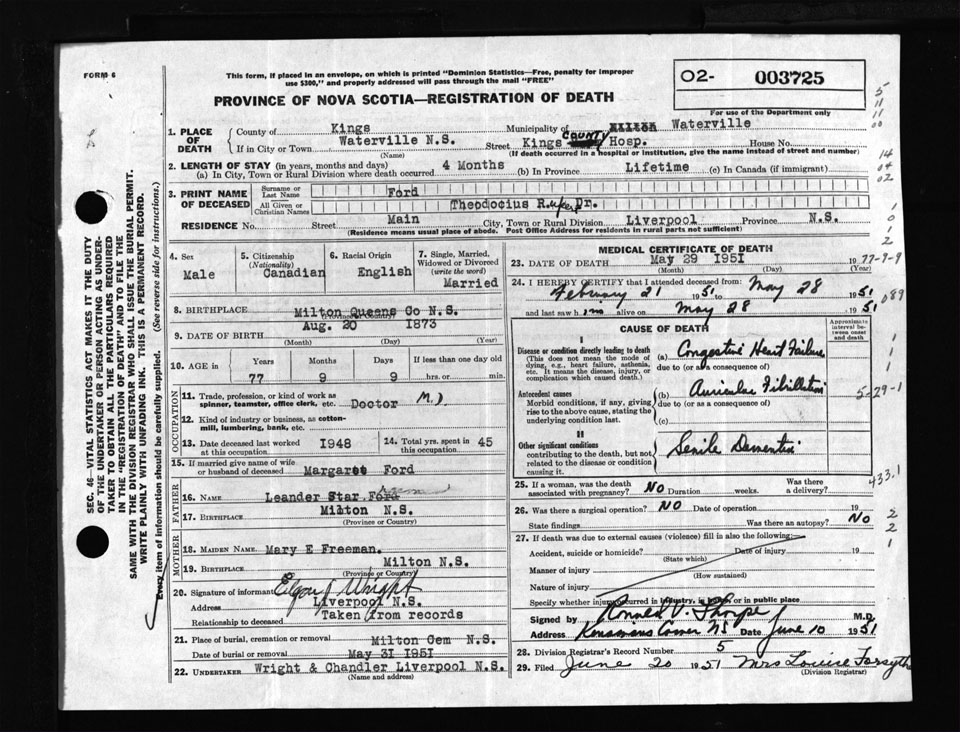 FORM 6
This form, if placed in an envelope, on which is printed "Dominion Statistics—Free, penalty for improper
use $300," and properly addressed will pass through the mail "FREE"
PROVINCE OF NOVA SCOTIA—REGISTRATION OF DEATH
O2- 003725
For use of the Department only
SEC. 46—VITAL STATISTICS ACT MAKES IT THE DUTY
OF THE UNDERTAKER OR PERSON ACTING AS UNDER-
TAKER TO OBTAIN ALL THE PARTICULARS REQUIRED
IN THE "REGISTRATION OF DEATH" AND TO FILE THE
SAME WITH THE DIVISION REGISTRAR WHO SHALL ISSUE THE BURIAL PERMIT.
WRITE PLAINLY WITH UNFADING INK. THIS IS A PERMANENT RECORD.
Every item of information should be carefully supplied. (See reverse side for instructions.)
1. PLACE OF DEATH
County of Kings Municipality of Milton Waterville
If in City or Town Waterville N.S. Street Kings COUNTY Hosp. House No.
(Name) (If death occurred in a hospital or institution, give the name instead of street and number)
2. LENGTH OF STAY (in years, months and days)
(a) In City, Town or Rural Division where death occurred 4 Months (b) In Province Lifetime (c) In Canada (if immigrant)
3. PRINT NAME OF DECEASED
Surname or Last Name Ford
All Given or Christian Names Theodocius Rupert Dr.
RESIDENCE No. Street Main City, Town or Rural Division Liverpool Province N.S.
(Residence means usual place of abode. Post Office Address for residents in rural parts not sufficient)
4. Sex Male
5. Citizenship (Nationality) Canadian
6. Racial Origin English
7. Single, Married, Widowed or Divorced (write the word) Married
8. BIRTHPLACE Milton Queens Co N.S.
(Province or Country)
9. DATE OF BIRTH Aug. 20 1873
(Month) (Day) (Year)
10. AGE in Years Months Days If less than one day old
77 9 9 hrs. or min.
OCCUPATION
11. Trade, profession, or kind of work as
spinner, teamster, office clerk, etc. Doctor M.D
12. Kind of industry or business, as cotton-
mill, lumbering, bank, etc.
13. Date deceased last worked at this occupation 1948
14. Total yrs. spent in this occupation 45
15. If married give name of wife
or husband of deceased Margaret Ford
FATHER
16. NAME Leander Star Ford
17. BIRTHPLACE Milton N.S.
(Province or Country)
MOTHER
18. MAIDEN NAME Mary E Freeman.
19. BIRTHPLACE Milton N.S.
(Province or Country)
20. Signature of informant Wright
Address Liverpool N.S.
Relationship to deceased Taken from records
21. Place of burial, cremation or removal Milton Cem N.S.
Date of burial or removal May 31 1951
22. UNDERTAKER Wright & Chandler Liverpool N.S.
(Name and address)
MEDICAL CERTIFICATE OF DEATH
23. DATE OF DEATH May 29 1951 19
(Month) (Day) (Year)
24. I HEREBY CERTIFY that I attended deceased from:
February 21 1951 to May 28 1951
and last saw him alive on May 28 1951
CAUSE OF DEATH
Approximate interval between onset and death
I
Disease or condition directly leading to death
(This does not mean the mode of
dying, e.g., heart failure, asthenia,
etc. It means the disease, injury, or
complication which caused death.)
(a) Congestive Heart Failure
due to (or as a consequence of)
Antecedent causes
Morbid conditions, if any, giving
rise to the above cause, stating the
underlying condition last.
(b) Auricular Fibrillation
due to (or as a consequence of)
(c)
II
Other significant conditions
contributing to the death, but not
related to the disease or condition
causing it.
Senile Dementia
25. If a woman, was the death
associated with pregnancy? NO Duration weeks. Was there a delivery?
26. Was there a surgical operation? NO Date of operation 19
State findings Was there an autopsy? NO
27. If death was due to external causes (violence) fill in also the following:
Accident, suicide or homicide? Date of injury 19
(State which)
Manner of injury
(How sustained)
Nature of injury
Specify whether injury occurred in industry, in home or in public place
Signed by Ronald V. Thorpe M.D.
Address NS Date June 10 1951
28. Division Registrar's Record Number 5
29. Filed June 20 1951 Mrs Louise Forsythe
(Division Registrar)
5
11
11
00
14
04
02
1
0
1
2
77-9-9
089
1
1
1
5-29-1
433.1
2
2
1